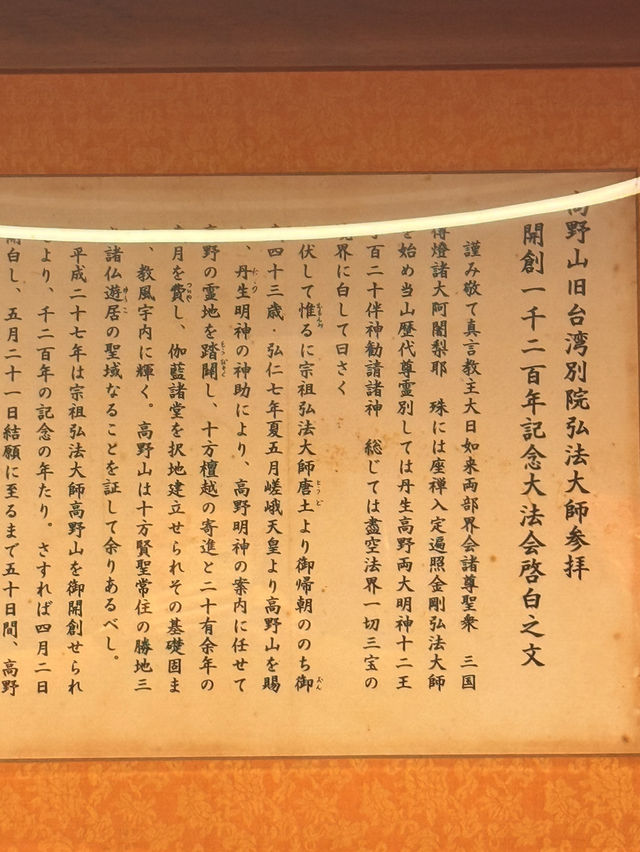 高野山旧台湾別院弘法大師参拝
開創一千二百年記念大法会啓白之文
謹み敬て真言教主大日如来両部界会諸尊聖衆　三国
傳燈諸大阿闍梨耶　殊には座禅入定遍照金剛弘法大師
を始め当山歴代尊霊別しては丹生高野両大明神十二王
百二十伴神勧請諸神　総じては盡空法界一切三宝の
境界に白して曰さく
伏して惟るに宗祖弘法大師唐土より御帰朝ののち御
四十三歳・弘仁七年夏五月嵯峨天皇より高野山を賜
、丹生明神の神助により、高野明神の案内に任せて
高野の霊地を踏開し、十方檀越の寄進と二十有余年の
月を費し、伽藍諸堂を択地建立せられその基礎固ま
、教風宇内に輝く。高野山は十方賢聖常住の勝地三
諸仏遊居の聖域なることを証して余りあるべし。
平成二十七年は宗祖弘法大師高野山を御開創せられ
より、千二百年の記念の年たり。さすれば四月二日
開白し、五月二十一日結願に至るまで五十日間、高野